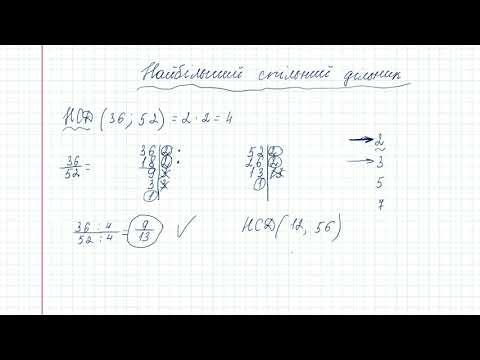 Найбільший спільний дільник
НСД (36; 52) = 2 · 2 = 4
36/52 =
36 | 2
18 | 2
9 | 3
3 | 3
1
52 | 2
26 | 2
13 | 13
1
2
3
5
7
36 : 4 / 52 : 4 = 9/13 ✓
НСД (12, 56)